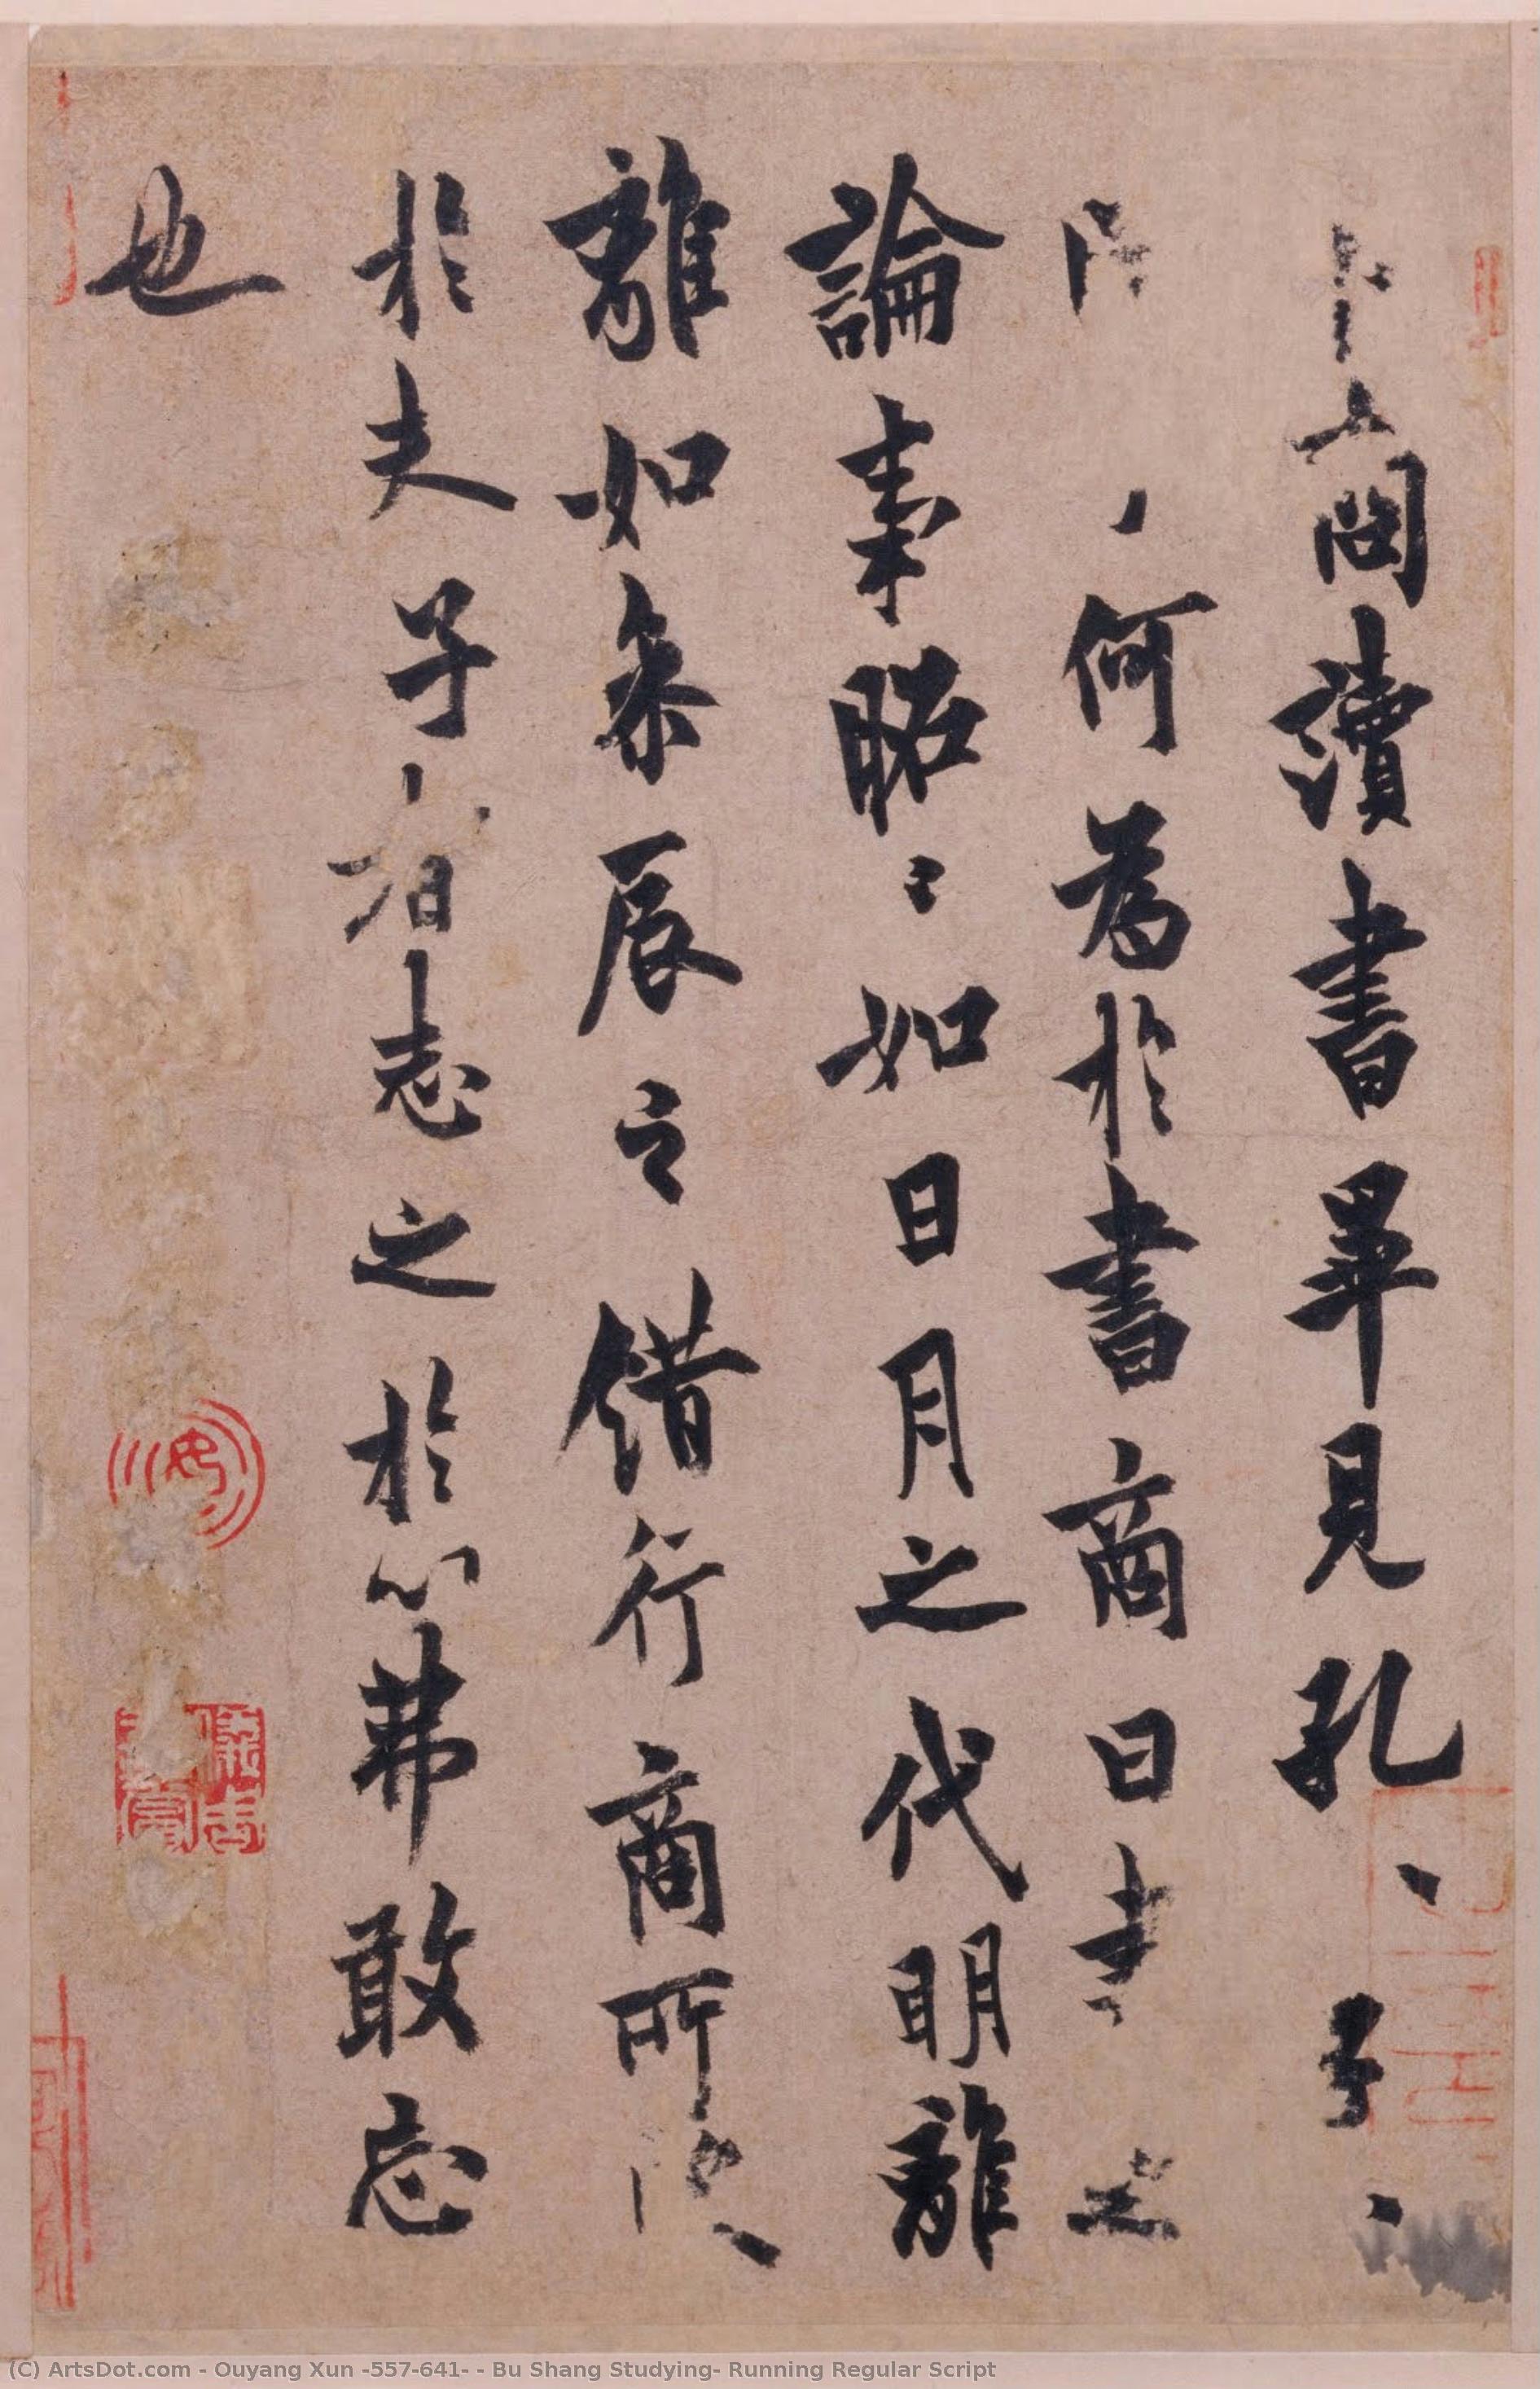 卜商讀書畢見孔子
何為於書商曰書之
論事昭〻如日月之代明離
離如參辰之錯行商所
於夫子者志之於心弗敢忘
也
(C) ArtsDot.com - Ouyang Xun -557-641- - Bu Shang Studying- Running Regular Script